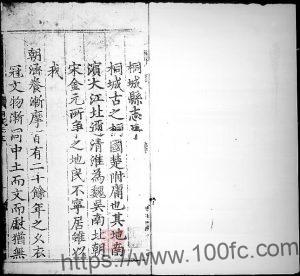 桐城縣志
桐城古之桐國楚附庸也其地南
濱大江北邇清淮為魏吳南北朝
宋金元所爭之地民不寧居雖
我
朝養漸摩百有二十餘年之久衣
冠文物漸同中土而文獻猶無
https://www.100fc.com